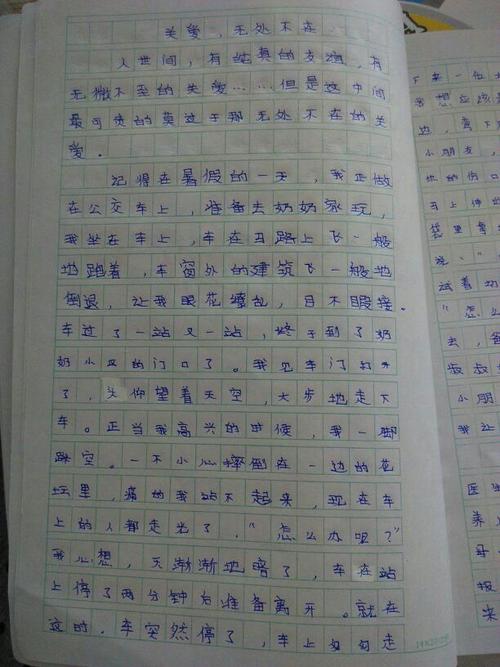 关爱，无处不在
人世间，有纯真的友谊，有
无微不至的关爱……但是这中间
最可贵的莫过于那无处不在的关
爱。
记得在暑假的一天，我正做
在公交车上，准备去奶奶家玩，
我坐在车上，车在马路上飞一般
地跑着，车窗外的建筑飞一般地
倒退，让我眼花缭乱，目不暇接。
车过了一站又一站，终于到了奶
奶小区的门口了。我见车门打开
了，头仰望着天空，大步地走下
车。正当我高兴的时候，我一脚
踩空。一不小心摔倒在一边的花
坛里，痛的我站不起来，现在车
上的人都走光了，“怎么办呢？”
我心想，天渐渐地暗了，车在站
上停了两分钟后准备离开。就在
这时，车突然停了，车上匆匆走
下来一位
边，弯下
小朋友，
她的伤口
马上伸
试着
“怎么
去，
叔叔
小朋
我让
医生
养
母
报
来